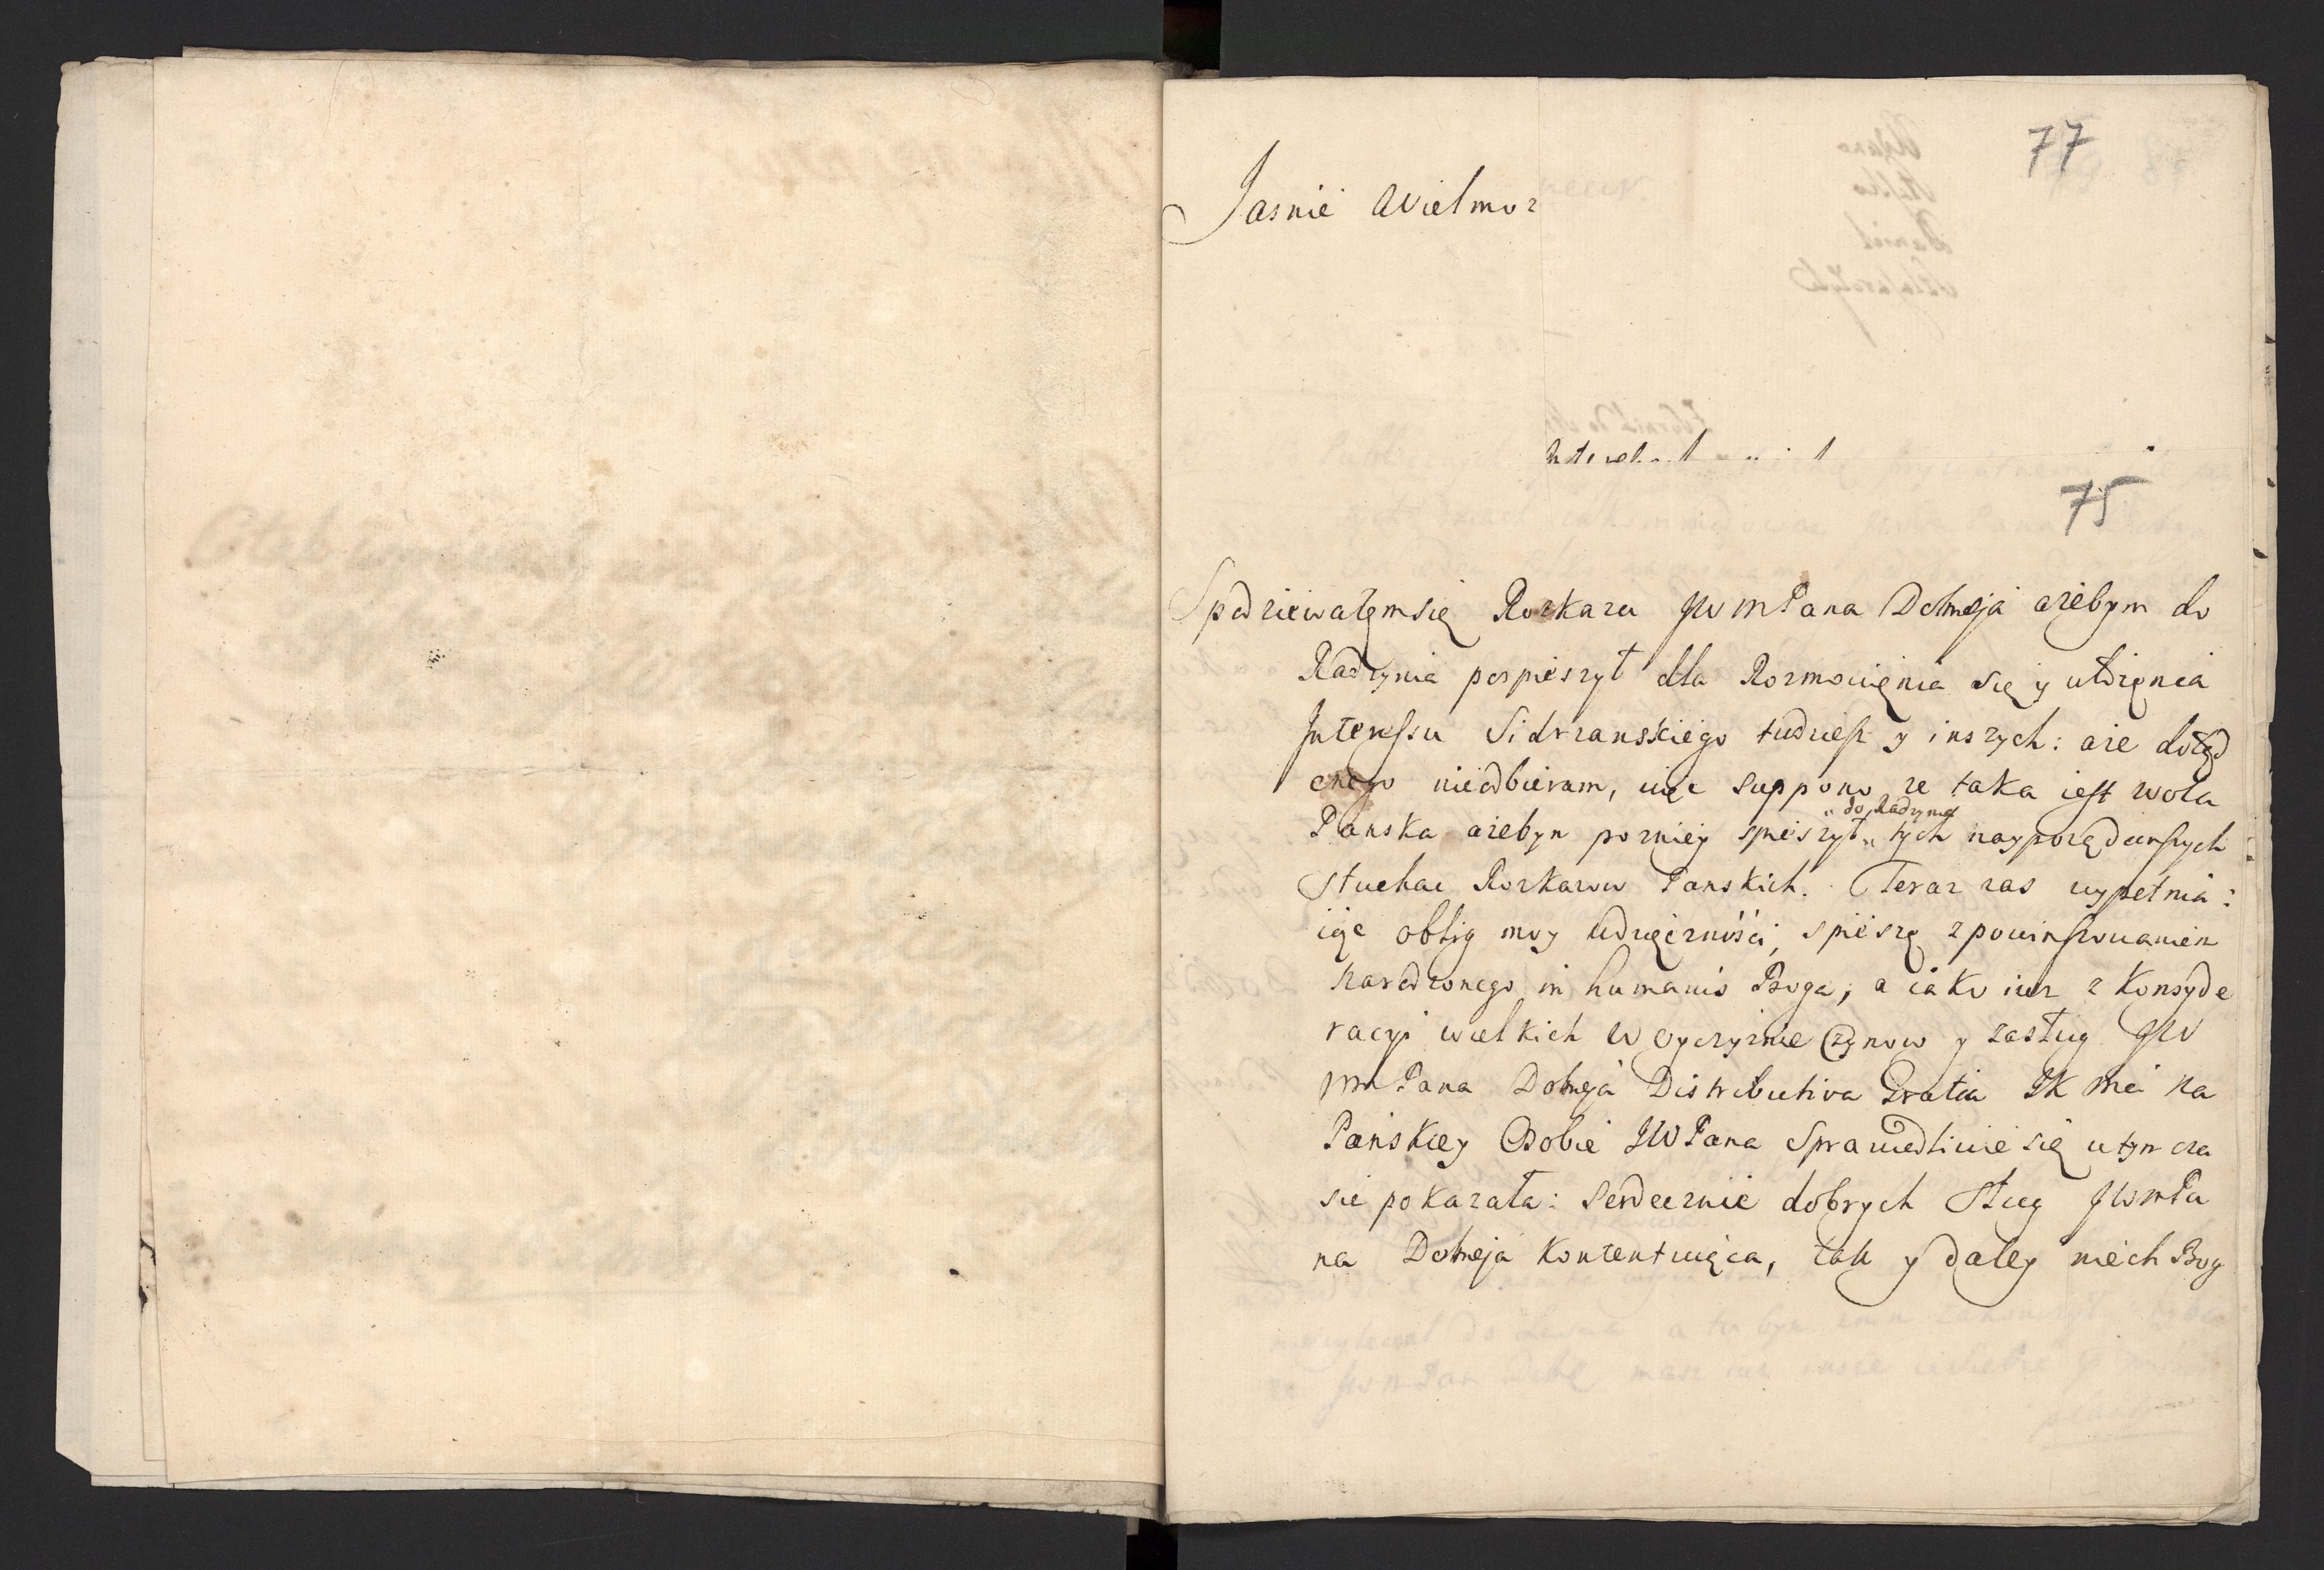 77
Jasnie Wielmoz
75
Spodziewałem się Rozkazu JWmPana Dobreja azebym do
Radzynia pospieszył dla Rozmowienia się y
Interessu Sidrzanskiego tudziesz y inszych: aze dotąd
onego nieodbieram, więc suppono ze taka iest wola
Panska azebym pozniey spieszył „do Radzynia„ tych nayporządnieszych
słuchac Rozkazow Panskich. Teraz zas wypełnia:
iąc oblig moy wdzięcznośći, spieszę z powinszowaniem
Narodzonego in humanis Boga, a iako iuz z Konsyde
racyi wielkich w Oyczyznie Czynow y zasług JW
mPana Dobreja Distributiva Gratia JK Mci na
Panskiey Osobie JWPana Sprawiedliwie się w tym cza
sie pokazała: Serdecznie dobrych sług JWmPa
na Dobreja Kontentuiąca, tak y daley niech Bog